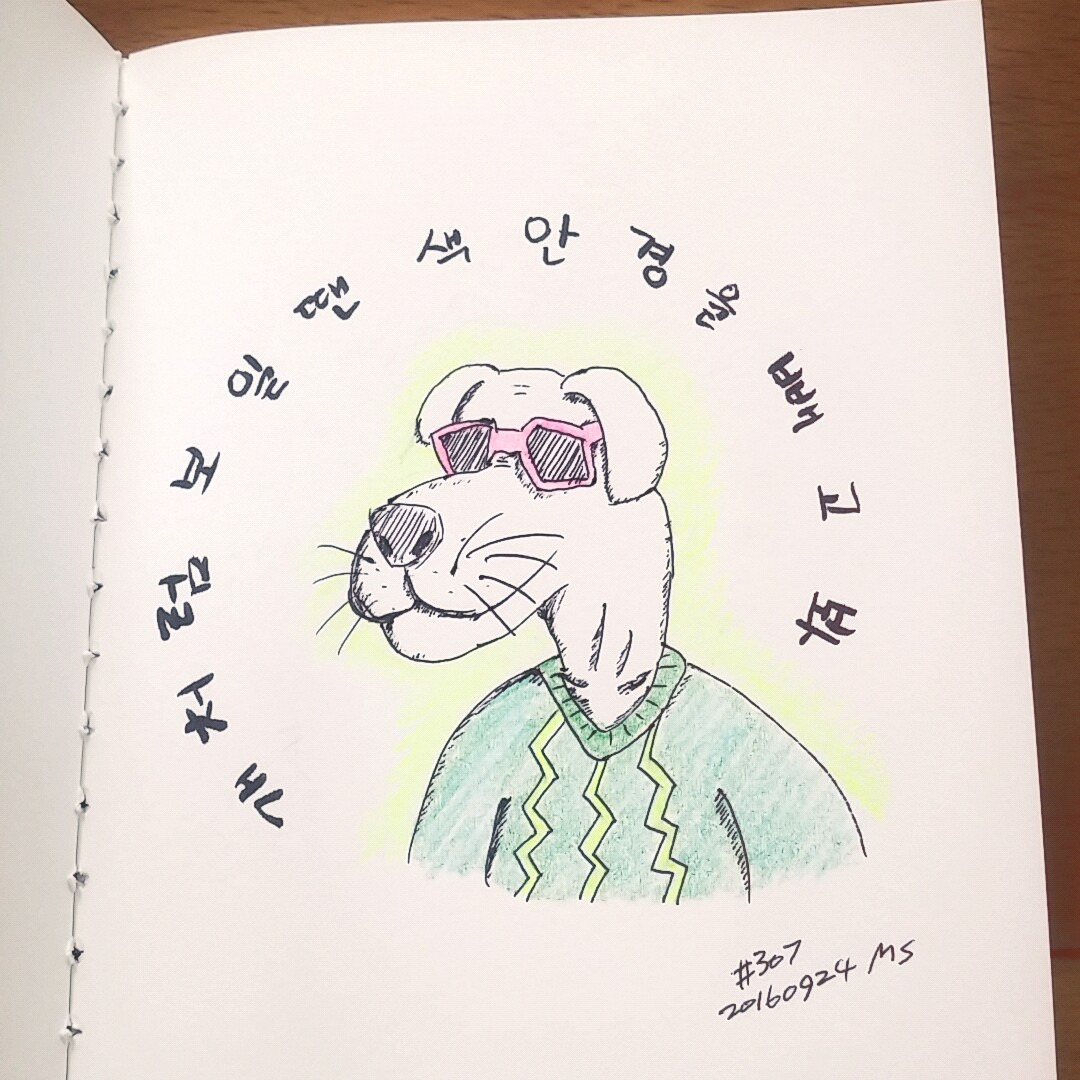 개처럼 보일 땐 색안경을 빼고 봐
#307
20160924 MS